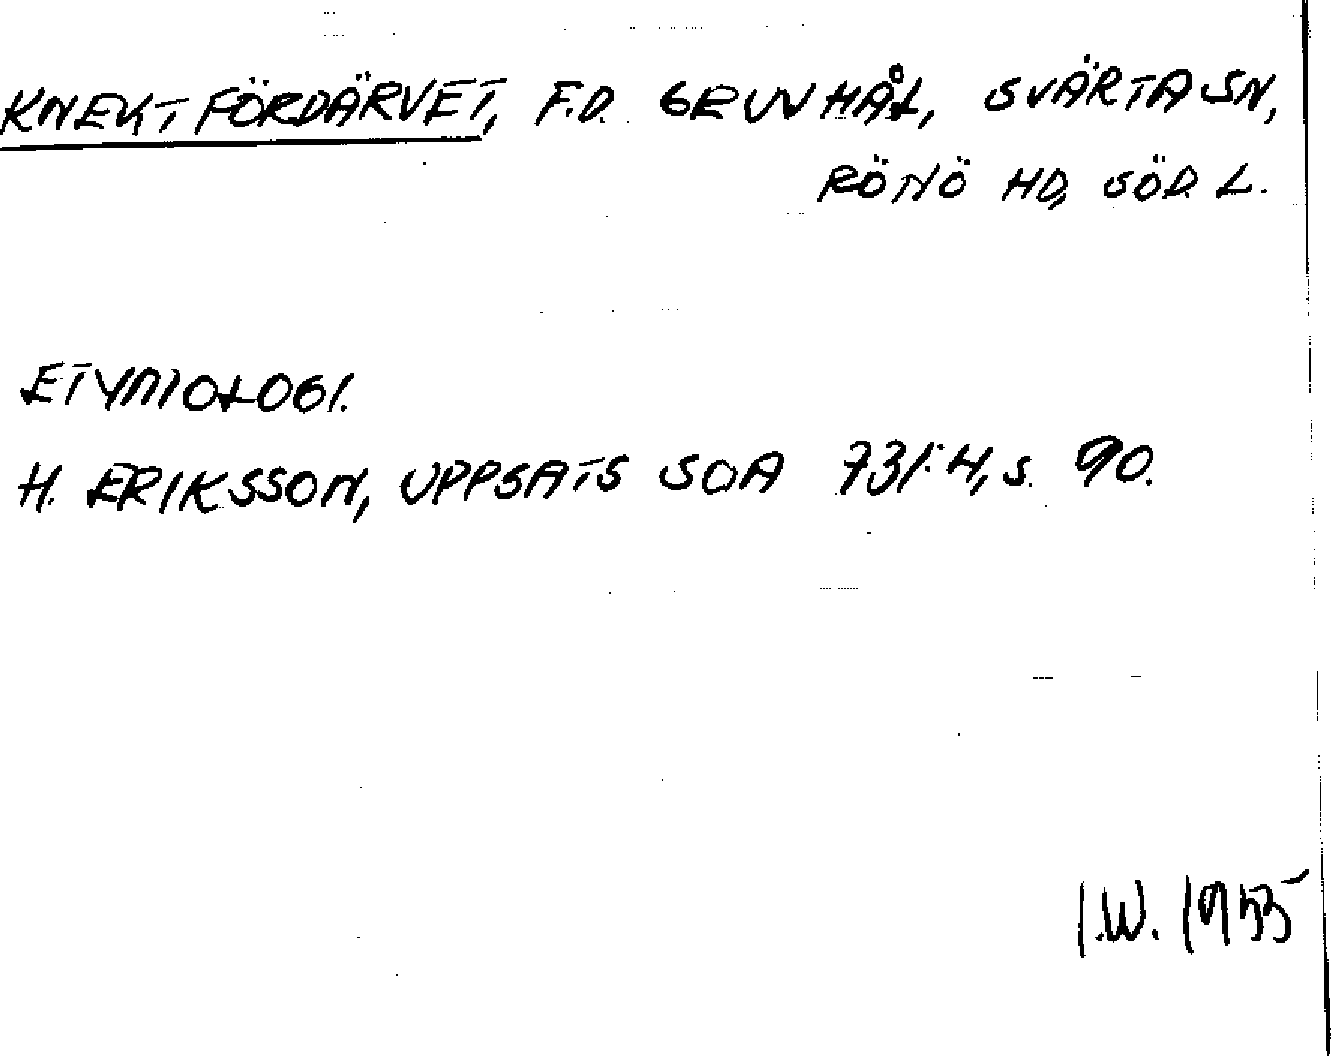 KNEKTFÖRDÄRVET, F.D. GRUVHÅL, SVÄRTA SN,
RÖNÖ HD, SÖD. L.
ETYMOLOGI.
H. ERIKSSON, UPPSATS SOA 731:4, S. 90.
I.W. 1955